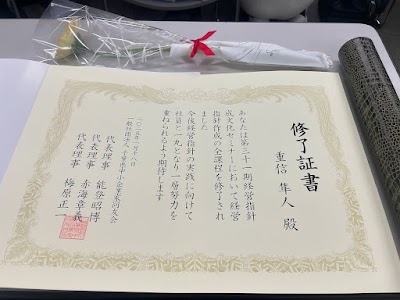 修了証書
重信 隼人 殿
あなたは第三十一期経営指針
成文化セミナーにおいて経営
指針作成の全課程を修了され
ました
今後経営指針の実践に向けて
社員と一丸となり一層努力を
重ねられるよう期待します
一般社団法人千葉県中小企業家同友会
代表理事 能登昭博
代表理事 赤海章義
代表理事 梅原正一